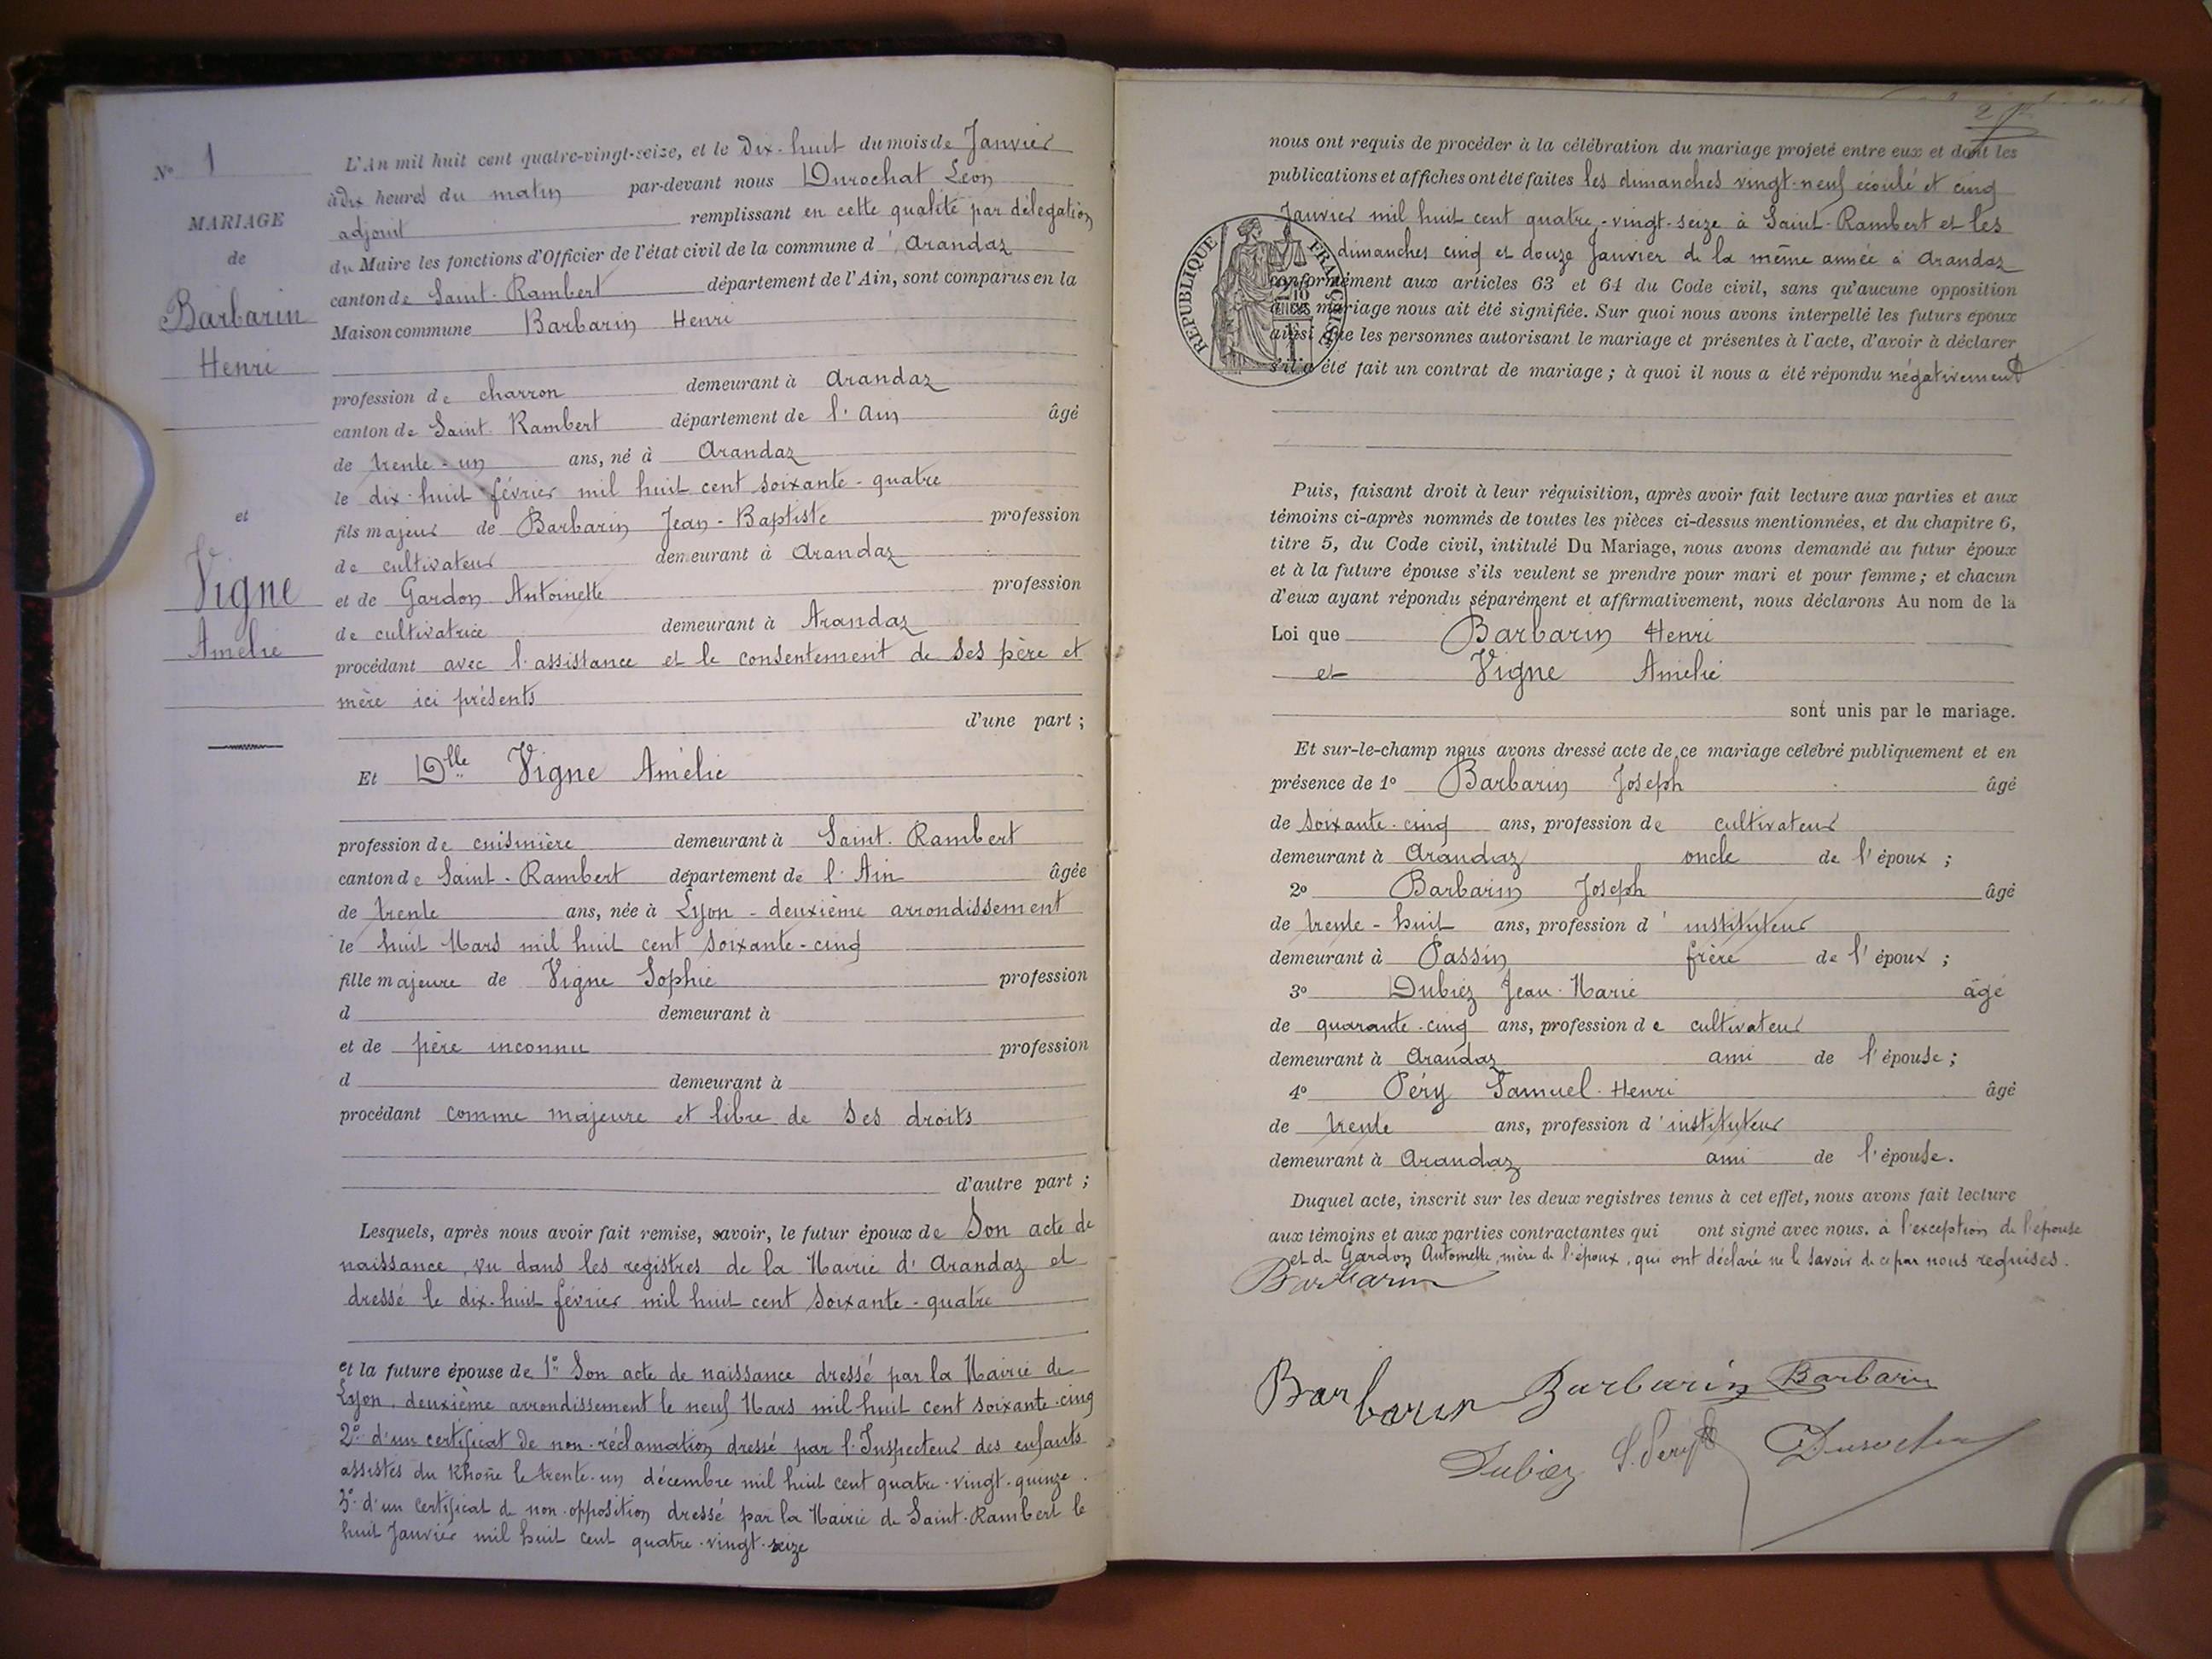 N° 1
MARIAGE
de
Barbarin
Henri
et
Vigne
Amélie
L'An mil huit cent quatre-vingt-seize, et le Dix-huit du mois de Janvier
à Dix heures du matin par-devant nous Durochat Léon
adjoint remplissant en cette qualité par délégation
du Maire les fonctions d'Officier de l'état civil de la commune d'Arandaz
canton de Saint-Rambert département de l'Ain, sont comparus en la
Maison commune Barbarin Henri
profession de charron demeurant à Arandaz
canton de Saint-Rambert département de l'Ain âgé
de trente-un ans, né à Arandaz
le dix-huit février mil huit cent soixante-quatre
fils majeur de Barbarin Jean-Baptiste profession
de cultivateur demeurant à Arandaz
et de Gardon Antoinette profession
de cultivatrice demeurant à Arandaz
procédant avec l'assistance et le consentement de ses père et
mère ici présents
d'une part ;
Et Dlle Vigne Amélie
profession de cuisinière demeurant à Saint-Rambert
canton de Saint-Rambert département de l'Ain âgée
de trente ans, née à Lyon-deuxième arrondissement
le huit Mars mil huit cent soixante-cinq
fille majeure de Vigne Sophie profession
d demeurant à
et de père inconnu profession
d demeurant à
procédant comme majeure et libre de ses droits
d'autre part ;
Lesquels, après nous avoir fait remise, savoir, le futur époux de Son acte de
naissance, vu dans les registres de la Mairie d'Arandaz et
dressé le dix-huit février mil huit cent soixante-quatre
et la future épouse de 1° Son acte de naissance dressé par la Mairie de
Lyon, deuxième arrondissement le neuf Mars mil huit cent soixante-cinq
2° d'un certificat de non-réclamation dressé par l'Inspecteur des enfants
assistés du Rhône le trente-un décembre mil huit cent quatre-vingt-quinze.
3° d'un certificat de non-opposition dressé par la Mairie de Saint-Rambert le
huit Janvier mil huit cent quatre-vingt-seize
2
nous ont requis de procéder à la célébration du mariage projeté entre eux et dont les
publications et affiches ont été faites les dimanches vingt-neuf écoulé et cinq
Janvier mil huit cent quatre-vingt-seize à Saint-Rambert et les
dimanches cinq et douze Janvier de la même année à Arandaz
RÉPUBLIQUE FRANÇAISE
conformément aux articles 63 et 64 du Code civil, sans qu'aucune opposition
à ces mariage nous ait été signifiée. Sur quoi nous avons interpellé les futurs époux
ainsi que les personnes autorisant le mariage et présentes à l'acte, d'avoir à déclarer
s'il a été fait un contrat de mariage ; à quoi il nous a été répondu négativement
Puis, faisant droit à leur réquisition, après avoir fait lecture aux parties et aux
témoins ci-après nommés de toutes les pièces ci-dessus mentionnées, et du chapitre 6,
titre 5, du Code civil, intitulé Du Mariage, nous avons demandé au futur époux
et à la future épouse s'ils veulent se prendre pour mari et pour femme ; et chacun
d'eux ayant répondu séparément et affirmativement, nous déclarons Au nom de la
Loi que Barbarin Henri
et Vigne Amélie
sont unis par le mariage.
Et sur-le-champ nous avons dressé acte de ce mariage célébré publiquement et en
présence de 1° Barbarin Joseph âgé
de soixante-cinq ans, profession de cultivateur
demeurant à Arandaz oncle de l'époux ;
2° Barbarin Joseph âgé
de trente-huit ans, profession d'instituteur
demeurant à Passin frère de l'époux ;
3° Dubiez Jean-Marie âgé
de quarante-cinq ans, profession de cultivateur
demeurant à Arandaz ami de l'épouse ;
4° Péry Samuel-Henri âgé
de trente ans, profession d'instituteur
demeurant à Arandaz ami de l'épouse.
Duquel acte, inscrit sur les deux registres tenus à cet effet, nous avons fait lecture
aux témoins et aux parties contractantes qui ont signé avec nous. à l'exception de l'épouse
et de Gardon Antoinette, mère de l'époux, qui ont déclaré ne le savoir de ce par nous requises.
Barbarin
Barbarin Barbarin Barbarin
Dubiez S. Pery Durochat